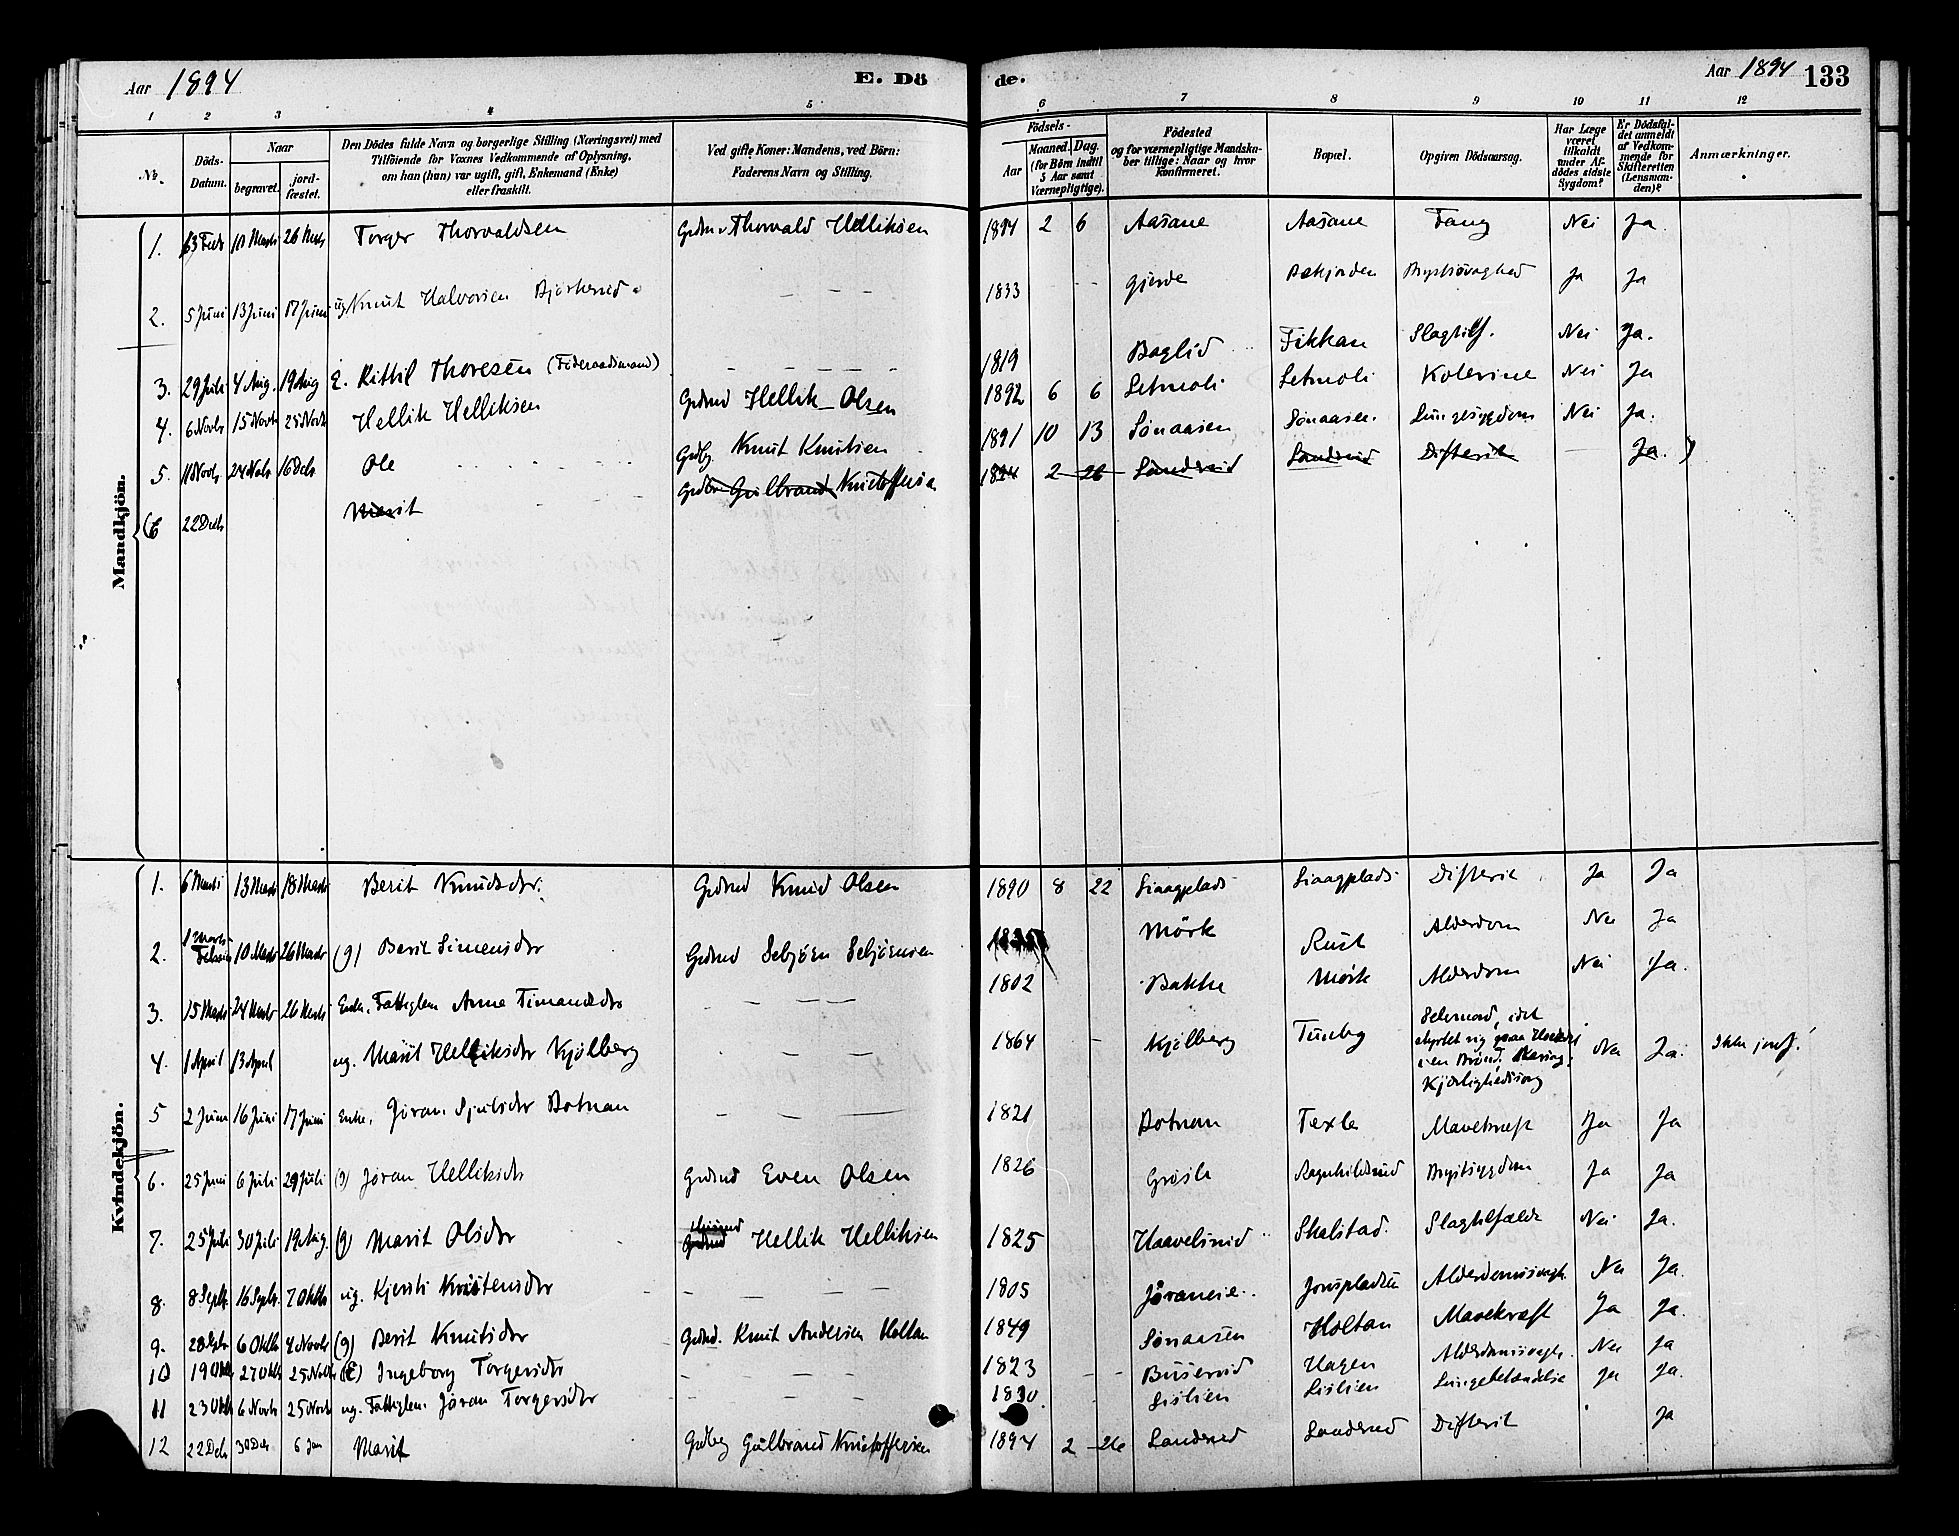 Aar 1894
E. Dö
de.
Aar 1894 133
1 2 3 4 5 6 7 8 9 10 11 12
No.
Döds-Datum.
Naar
begravet.
jordfæstet.
Den Dödes fulde Navn og borgerlige Stilling (Næringsvei) med
Tilföiende for Voxnes Vedkommende af Oplysning,
om han (hun) var ugift, gift, Enkemand (Enke)
eller fraskilt.
Ved gifte Koner: Mandens, ved Börn:
Faderens Navn og Stilling.
Födsels-
Aar
Maaned. Dag.
(for Börn indtil
5 Aar samt
Værnepligtige).
Födested
og for værnepligtige Mandska-
ber tillige: Naar og hvor
konfirmeret.
Bopæl.
Opgiven Dödsaarsag.
Har Læge
været
tilkaldt
under Af-
dödes sidste
Sygdom?
Er Dödsfal-
det anmeldt
af Vedkom-
mende for
Skifteretten
(Lensman-
den)?
Anmærkninger.
Mandkjön.
1. Torger Thorvaldsen Thorvald Helliksen 1894 2 6 Aasane Aasane Nei Ja
2. 5 Juni 13 Juni 17 Juni ug Knut Halvorsen 1833 Gjerde Ja Ja
3. 29 Juli 4 Aug. 19 Aug E. Kittil Thoresen (Föderaadsmand) 1819 Baglid Fikkan Slagtilf. Nei Ja.
4. 6 Novbr 15 Novbr 25 Novbr Hellik Helliksen Grdbrud Hellik Olsen 1892 6 6 Setmoli Setmoli Kolerine Nei Ja
5. 24 Novbr 16 Decbr Ole Grdbg. Knut Knutsen 1891 10 13 Sønaasen Sønaasen. Lungesygdom Nei Ja.
(6 22 Decbr Marit Gulbrand Knutoffersen 1894 2 26 Sanderud Sanderud Difterit Ja.)
Kvindekjön.
1. 6 Marts 13 Marts 18 Marts Berit Knudsdtr. Grdbrud Knud Olsen 1890 8 22 Siaagplads Siaagplads Difterit Ja Ja
2. 1 Marts 10 Marts 26 Marts (g) Berit Simensdtr Grdbrud Sebjørn Sebjørnsen Mörk Rust Alderdom Nei Ja
3. 15 Marts 24 Marts 26 Marts Enke, Fattiglem Anne Timandsdtr 1802 Bakke Mörk Alderdom Nei Ja.
4. 1 April 13 April ug. Marit Helliksdtr Kjölberg 1864 Kjölberg Selvmord, idet
styrtet sig paa Hodet
i en Brønd.
Kjærlighedssorg Nei Ja. Ikke jordf.
5 2 Juni 16 Juni 17 Juni Enke, Jöran Botnan 1821 Botnan Texle Mavekræft Ja Ja
6. 25 Juni 6 Juli 29 Juli (g) Jöran Helliksdtr Grdbrud Even Olsen 1826 Grøsli Ragnhildsrud Brystsygdom Ja Ja
7. 25 Juli 30 Juli 19 Aug. (g) Marit Olsdtr Hellik Helliksen 1825 Haavelsrud Skalstad. Slagtilfælde Nei Ja.
8. 8 Septr. 16 Septr. 7 Oktbr ug. Kjersti Kristensdtr 1805 Jöraneie Jonspladsen Alderdomssvagh. Nei Ja.
9. 28 Septr 6 Oktbr 4 Novbr (g) Berit Knutsdtr Grdbrud. Knut Andersen Holtan 1849 Sønaasen Holtan Mavekræft Ja Ja.
10 19 Oktbr 27 Oktbr 25 Novbr (E) Ingeborg Torgersdtr 1823 Buserud Hagen Alderdomssvagh. Nei Ja
11 23 Oktbr 6 Novbr 25 Novbr ug. Fattiglem. Jöran Torgersdtr 1830. Lislien Lislien Lungebetændelse Ja Ja.
12 22 Decbr 30 Decbr 6 Jan Marit Grdbrg Gulbrand Knutoffersen 1894 2 26 Sanderud Sanderud Difterit Ja